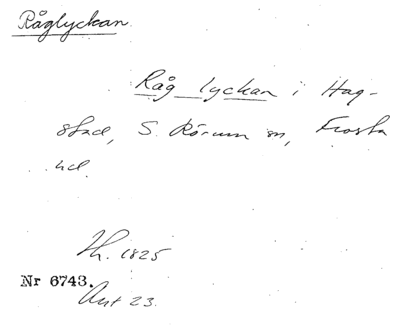 Råglyckan
Råg lyckan i Hag-
stad, S Rörum sn, Frosta
hd.
Th. 1825
Nr 6743.
Ant 23.